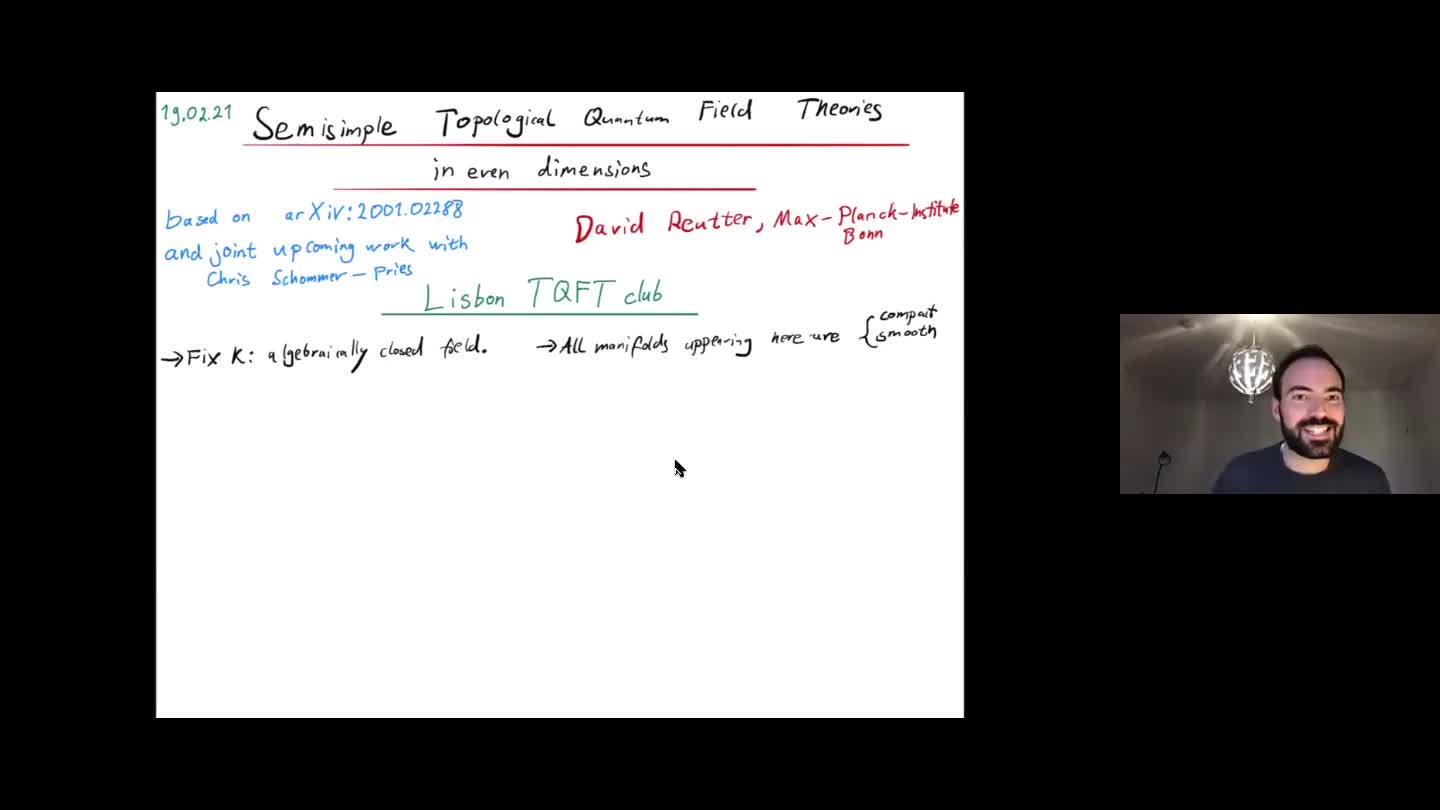 19.02.21
Semisimple Topological Quantum Field Theories
in even dimensions
based on arXiv:2001.02288
and joint upcoming work with
Chris Schommer-Pries
David Reutter, Max-Planck-Institute
Bonn
Lisbon TQFT club
→Fix K: algebraically closed field. →All manifolds appearing here are { compact
smooth